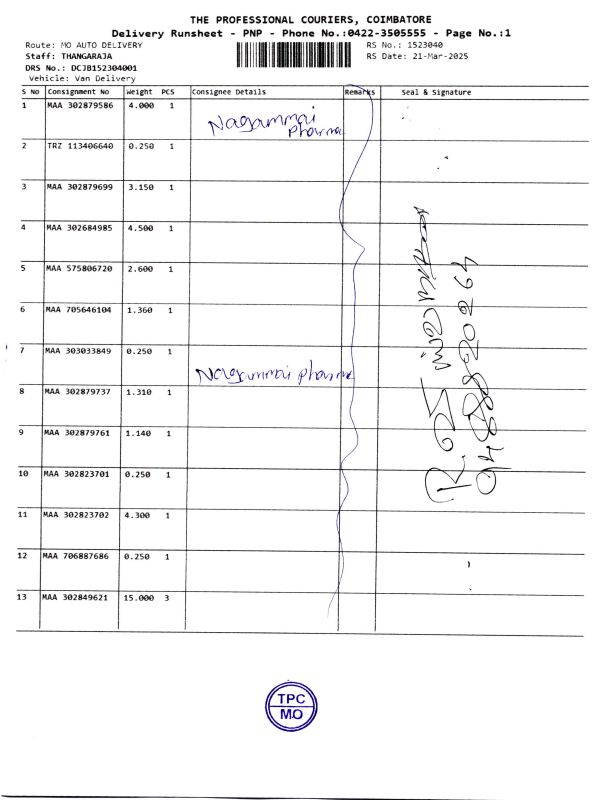 THE PROFESSIONAL COURIERS, COIMBATORE
Delivery Runsheet - PNP - Phone No.:0422-3505555 - Page No.:1
Route: MO AUTO DELIVERY
RS No.: 1523040
Staff: THANGARAJA
RS Date: 21-Mar-2025
DRS No.: DCJB152304001
Vehicle: Van Delivery
S No Consignment No Weight PCS Consignee Details Remarks Seal & Signature
1 MAA 302879586 4.000 1 Nagammai
Pharma
2 TRZ 113406640 0.250 1
3 MAA 302879699 3.150 1
4 MAA 302684985 4.500 1
5 MAA 575806720 2.600 1
6 MAA 705646104 1.360 1
7 MAA 303033849 0.250 1
Nagammai pharma
8 MAA 302879737 1.310 1
9 MAA 302879761 1.140 1
10 MAA 302823701 0.250 1
11 MAA 302823702 4.300 1
12 MAA 706887686 0.250 1
13 MAA 302849621 15.000 3
TPC
MO